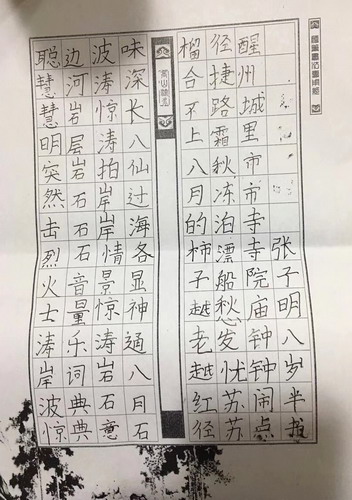 聪慧慧明突然击烈火士涛岸波惊
边河岩层岩石石石音量乐词典典
波涛惊涛拍岸岸情景惊涛岩石意
味深长八仙过海各显神通八月石
榴合不上八月的柿子越老越红径
径捷路霜秋冻泊漂船愁发忧苏苏
醒州城里市市寺寺院庙钟钟闹点
张子明八岁半书